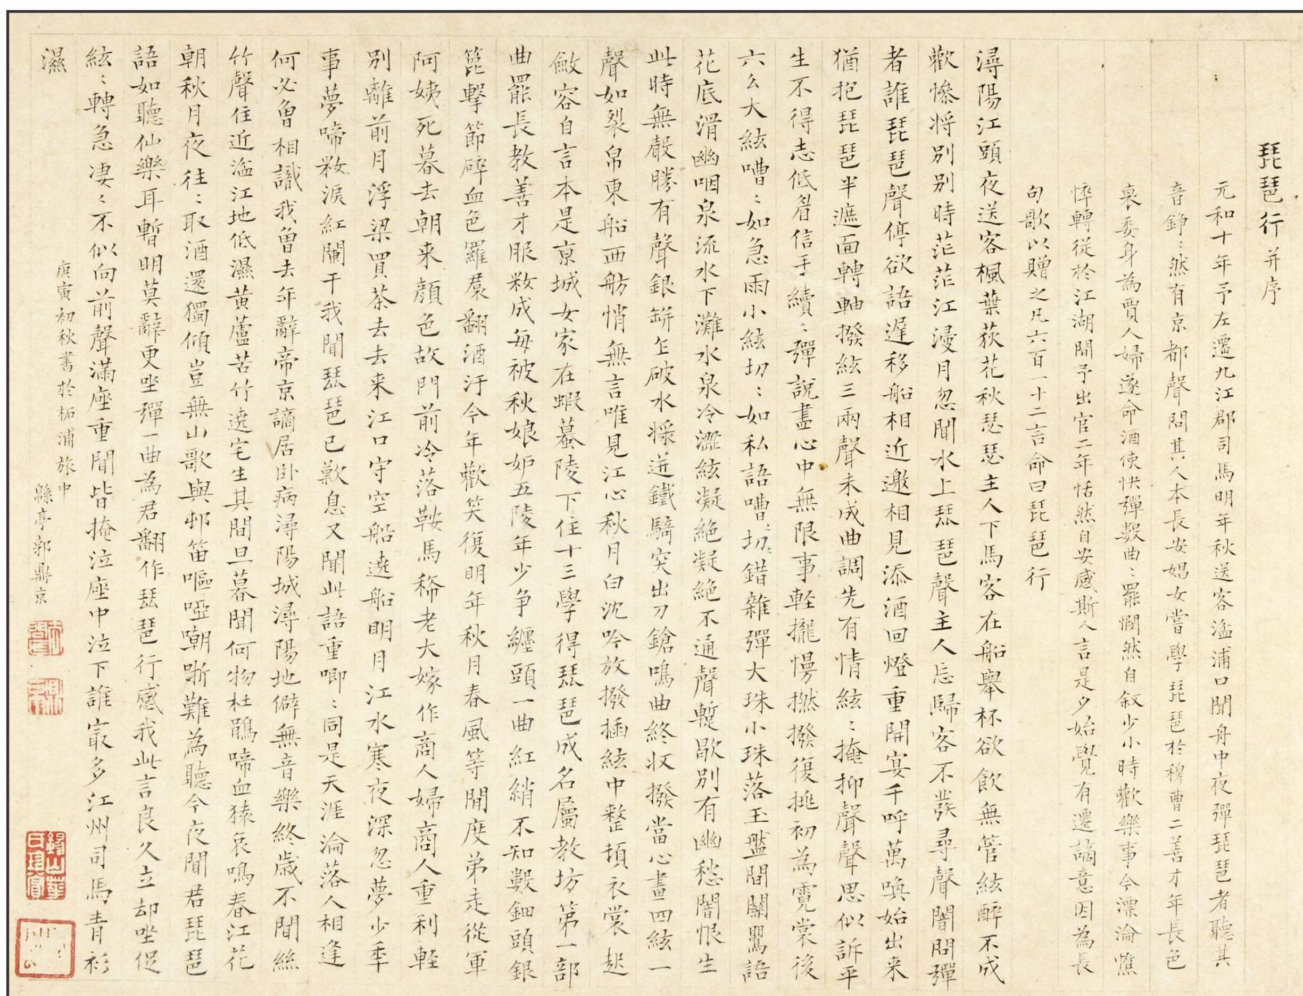 琵琶行并序
元和十年予左遷九江郡司馬明年秋送客湓浦口聞舟中夜彈琵琶者聽其
音錚〻然有京都聲問其人本長安娼女嘗學琵琶於穆曹二善才年長色
衰委身為賈人婦遂命酒使快彈數曲〻罷憫然自敘少小時歡樂事今漂淪憔
悴轉徒於江湖間予出官二年恬然自安感斯人言是夕始覺有遷謫意因為長
句歌以贈之凡六百一十二言命曰琵琶行
潯陽江頭夜送客楓葉荻花秋瑟瑟主人下馬客在船舉杯欲飲無管絃醉不成
歡慘将別別時茫茫江漫月忽聞水上琵琶聲主人忘歸客不發尋聲闇問彈
者誰琵琶聲停欲語遲移船相近邀相見添酒回燈重開宴千呼萬喚始出来
猶抱琵琶半遮面轉軸撥絃三兩聲未成曲調先有情絃〻掩抑聲聲思似訴平
生不得志低眉信手續〻彈說盡心中無限事軽攏慢撚撥復挑初為霓裳後
六幺大絃嘈〻如急雨小絃切〻如私語嘈〻切〻錯雜彈大珠小珠落玉盤間關鶯語
花底滑幽咽泉流水下灘水泉冷澀絃凝絕凝絕不通聲暫歇別有幽愁闇恨生
此時無聲勝有聲銀缾乍破水漿迸鐵騎突出刀鎗鳴曲終収撥當心畫四絃一
聲如裂帛東船西舫悄無言唯見江心秋月白沈吟放撥插絃中整頓衣裳起
斂容自言本是京城女家在蝦蟇陵下住十三學得琵琶成名屬教坊第一部
曲罷長教善才服粧成每被秋娘妒五陵年少争纏頭一曲紅綃不知數鈿頭銀
篦擊節碎血色羅裙翻酒汙今年歡笑復明年秋月春風等閒度弟走從軍
阿姨死暮去朝来顏色故門前冷落鞍馬稀老大嫁作商人婦商人重利軽
別離前月浮梁買茶去去来江口守空船遶船明月江水寒夜深忽夢少年
事夢啼粧淚紅闌干我聞琵琶已歎息又聞此語重唧〻同是天涯淪落人相逢
何必曾相識我曾去年辭帝京謫居卧病潯陽城潯陽地僻無音樂終歲不聞絲
竹聲住近湓江地低濕黃蘆苦竹遶宅生其間旦暮聞何物杜鵑啼血猿哀鳴春江花
朝秋月夜往〻取酒還獨傾豈無山歌與邨笛嘔啞嘲哳難為聽今夜聞君琵琶
語如聽仙樂耳暫明莫辭更坐彈一曲為君翻作琵琶行感我此言良久立却坐促
絃〻轉急凄〻不似向前聲滿座重聞皆掩泣座中泣下誰寂多江州司馬青衫
濕
庚寅初秋書於柘浦旅中
縣亭郭鼎京